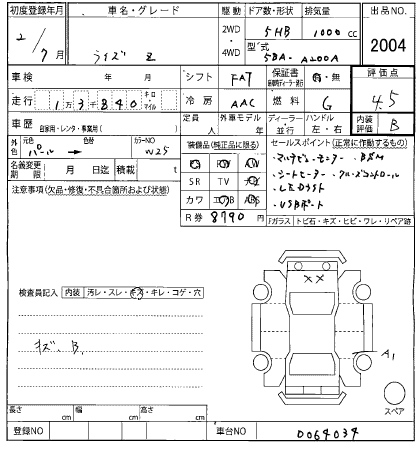 初度登録年月 車名・グレード 駆動 ドア数・形状 排気量 出品NO.
2/7月 ライズ Z 2WD・4WD 5HB 1000cc 2004
型式 5BA-A200A
車検 年 月 シフト FAT 保証書 有・無 評価点
走行 1万3千840 キロ・マイル 冷房 AAC 燃料 G 4.5
車歴 自家用・レンタ・事業用( ) 定員 人 外車モデル 年 ディーラー・並行 ハンドル 左・右 内装評価 B
外色 元色 パール → 色替 カラーNO W25
装備品(純正品に限る) セールスポイント(正常に作動するもの)
名義変更期限 月 日迄 積載量 t
SR TV
カワ
R券 8790円
・シートヒーター
・LEDヘッド
・USBポート
注意事項(欠品・修復・不具合箇所および状態)
ガラス トビ石・キズ・ヒビ・ワレ・リペア跡
検査員記入 内装 汚レ・スレ・キズ・キレ・コゲ・穴
××
キズ、B、
A1
スペア
長さ cm 幅 cm 高さ cm
登録NO 車台NO 0064034